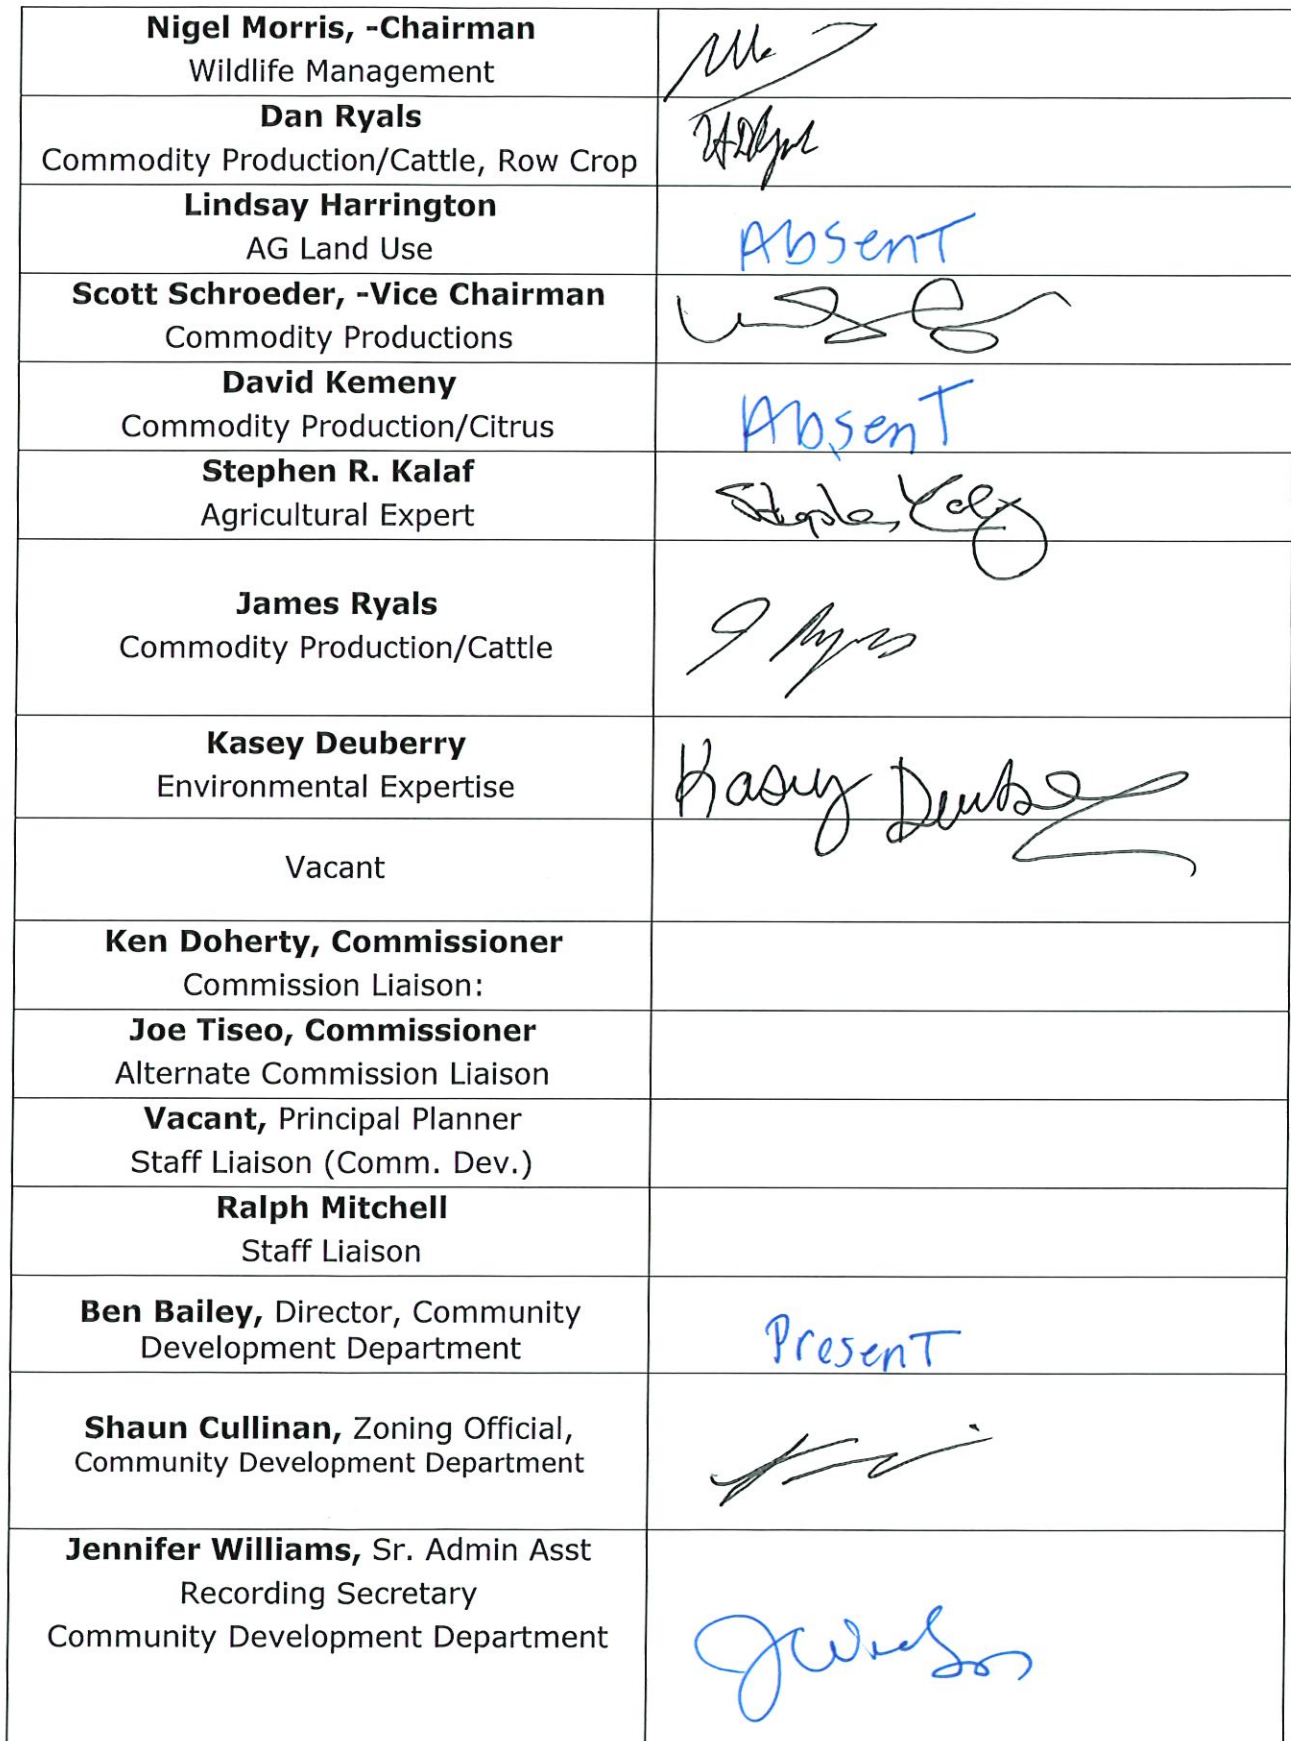 Nigel Morris, -Chairman
Wildlife Management
Dan Ryals
Commodity Production/Cattle, Row Crop
Lindsay Harrington
AG Land Use
Absent
Scott Schroeder, -Vice Chairman
Commodity Productions
David Kemeny
Commodity Production/Citrus
Absent
Stephen R. Kalaf
Agricultural Expert
James Ryals
Commodity Production/Cattle
Kasey Deuberry
Environmental Expertise
Kasey
Vacant
Ken Doherty, Commissioner
Commission Liaison:
Joe Tiseo, Commissioner
Alternate Commission Liaison
Vacant, Principal Planner
Staff Liaison (Comm. Dev.)
Ralph Mitchell
Staff Liaison
Ben Bailey, Director, Community
Development Department
Present
Shaun Cullinan, Zoning Official,
Community Development Department
Jennifer Williams, Sr. Admin Asst
Recording Secretary
Community Development Department